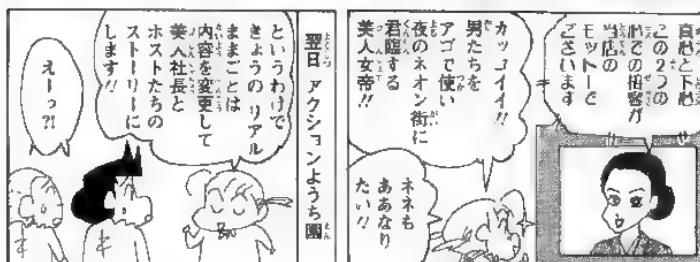 真心と下心
この2つの
心での接客が
当店の
モットーで
ございます
カッコイイ!!
男たちを
アゴで使い
夜のネオン街に
君臨する
美人女帝!!
ネネも
ああなり
たい!!
翌日 アクションようち園
というわけで
きょうのリアル
ままごとは
内容を変更して
美人社長と
ホストたちの
ストーリーに
します!!
えーっ?!